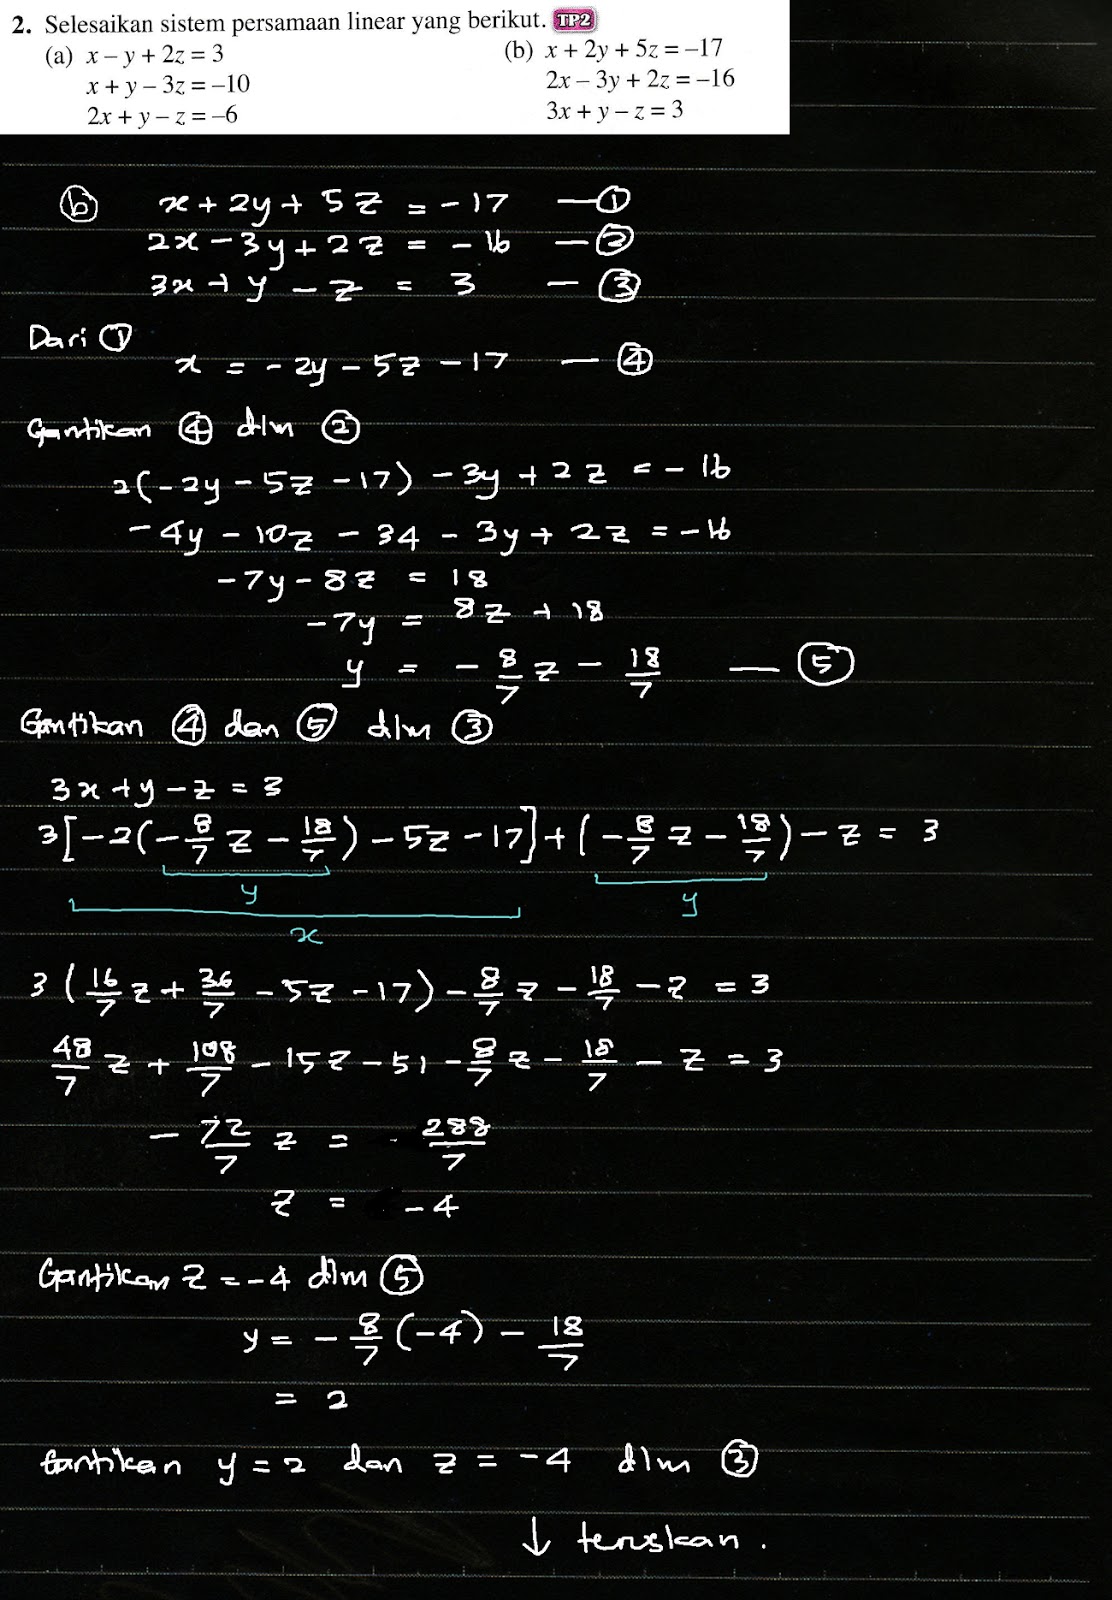 2. Selesaikan sistem persamaan linear yang berikut. TP2
(a) x – y + 2z = 3
x + y – 3z = –10
2x + y – z = –6
(b) x + 2y + 5z = –17
2x – 3y + 2z = –16
3x + y – z = 3
ⓑ x + 2y + 5z = -17 — ①
2x - 3y + 2z = -16 — ②
3x + y - z = 3 — ③
Dari ①
x = -2y - 5z - 17 — ④
Gantikan ④ dlm ②
2(-2y - 5z - 17) - 3y + 2z = -16
-4y - 10z - 34 - 3y + 2z = -16
-7y - 8z = 18
-7y = 8z + 18
y = -8/7 z - 18/7 — ⑤
Gantikan ④ dan ⑤ dlm ③
3x + y - z = 3
3[-2(-8/7 z - 18/7) - 5z - 17] + (-8/7 z - 18/7) - z = 3
y y
x
3(16/7 z + 36/7 - 5z - 17) - 8/7 z - 18/7 - z = 3
48/7 z + 108/7 - 15z - 51 - 8/7 z - 18/7 - z = 3
-72/7 z = -288/7
z = -4
Gantikan z = -4 dlm ⑤
y = -8/7 (-4) - 18/7
= 2
Gantikan y = 2 dan z = -4 dlm ③
↓ teruskan.